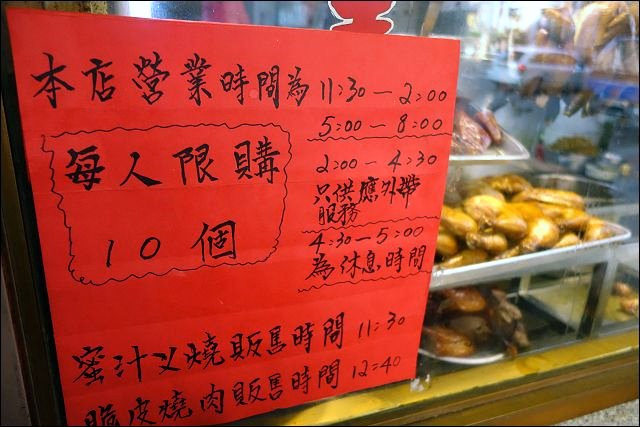 本店營業時間為 11:30－2:00
5:00－8:00
每人限購
10個
2:00－4:30
只供應外帶
服務
4:30－5:00
為休息時間
蜜汁叉燒販售時間 11:30
脆皮燒肉販售時間 12:40